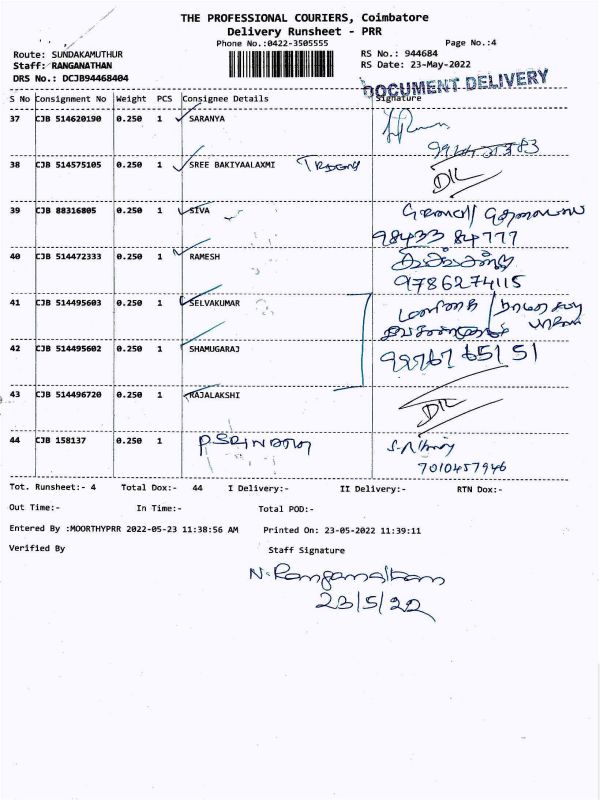 THE PROFESSIONAL COURIERS, Coimbatore
Delivery Runsheet - PRR
Phone No.:0422-3505555 Page No.:4
Route: SUNDAKAMUTHUR RS No.: 944684
Staff: RANGANATHAN RS Date: 23-May-2022
DRS No.: DCJB94468404
DOCUMENT DELIVERY
S No Consignment No Weight PCS Consignee Details Signature
37 CJB 514620190 0.250 1 SARANYA
38 CJB 514575105 0.250 1 SREE BAKIYAALAXMI
DIL
39 CJB 88316805 0.250 1 SIVA
98433 84777
40 CJB 514472333 0.250 1 RAMESH
9786274115
41 CJB 514495603 0.250 1 SELVAKUMAR
42 CJB 514495602 0.250 1 SHAMUGARAJ
99767 65151
43 CJB 514496720 0.250 1 RAJALAKSHI
DIL
44 CJB 158137 0.250 1
7010457946
Tot. Runsheet:- 4 Total Dox:- 44 I Delivery:- II Delivery:- RTN Dox:-
Out Time:- In Time:- Total POD:-
Entered By :MOORTHYPRR 2022-05-23 11:38:56 AM Printed On: 23-05-2022 11:39:11
Verified By Staff Signature
N. Ranganathan
23/5/22